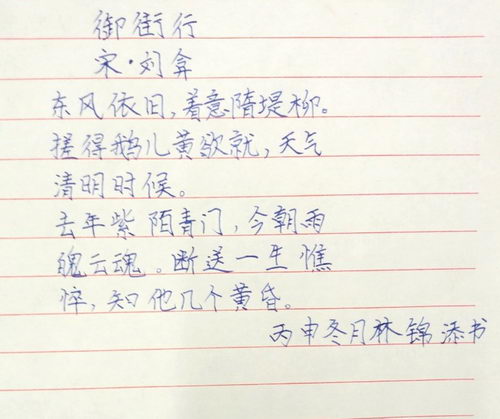 御街行
宋·刘弇
东风依旧,着意隋堤柳。
搓得鹅儿黄欲就,天气
清明时候。
去年紫陌青门,今朝雨
魄云魂。断送一生憔
悴,知他几个黄昏。
丙申冬月林锦添书